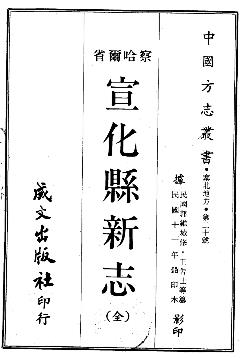 中國方志叢書・塞北地方・第二十號
據民國郭維城修・王告士等纂
民國十一年鉛印本
影印
察哈爾省
宣化縣新志
（全）
成文出版社印行